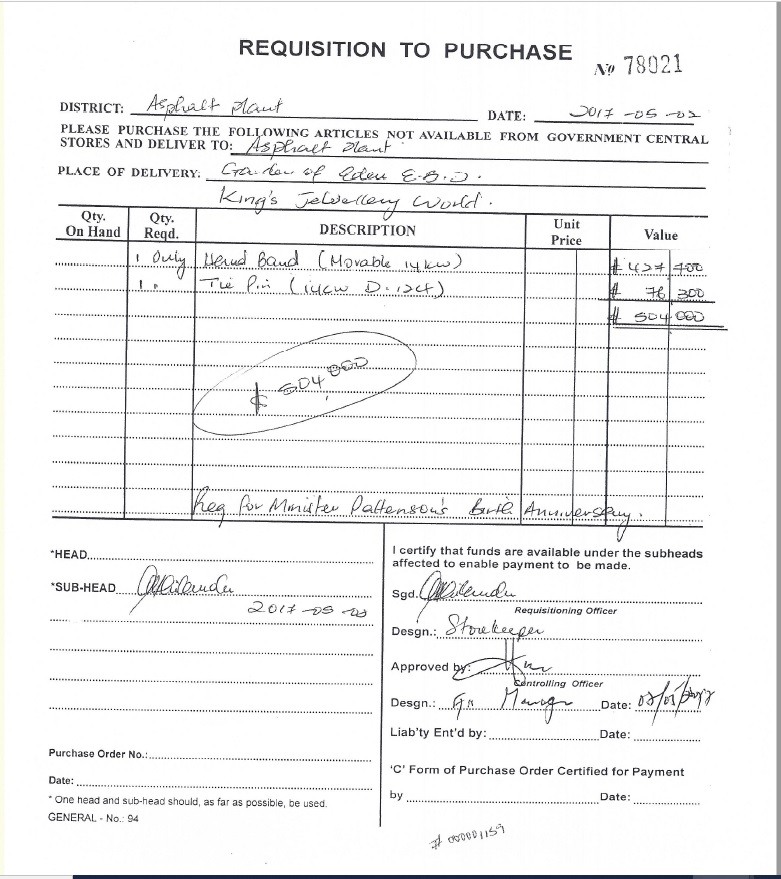 REQUISITION TO PURCHASE
No 78021
DISTRICT: Asphalt Plant DATE: 2017-05-02
PLEASE PURCHASE THE FOLLOWING ARTICLES NOT AVAILABLE FROM GOVERNMENT CENTRAL
STORES AND DELIVER TO: Asphalt Plant
PLACE OF DELIVERY: Garden of Eden E.B.D.
King's Jewellery World.
Qty. On Hand Qty. Reqd. DESCRIPTION Unit Price Value
1 Only Band (Movable 14KW) $ 427 700
1 " Tie Pin (14KW D.124) $ 76 300
$ 504 000
$ 504,000
Req for Minister Pattenson's Birth Anniversary.
*HEAD
*SUB-HEAD
2017-05-02
Purchase Order No.:
Date:
* One head and sub-head should, as far as possible, be used.
GENERAL - No.: 94
I certify that funds are available under the subheads
affected to enable payment to be made.
Sgd.
Requisitioning Officer
Desgn.: Storekeeper
Approved by:
Controlling Officer
Desgn.: Manager Date:
Liab'ty Ent'd by: Date:
'C' Form of Purchase Order Certified for Payment
by Date:
# 000001159